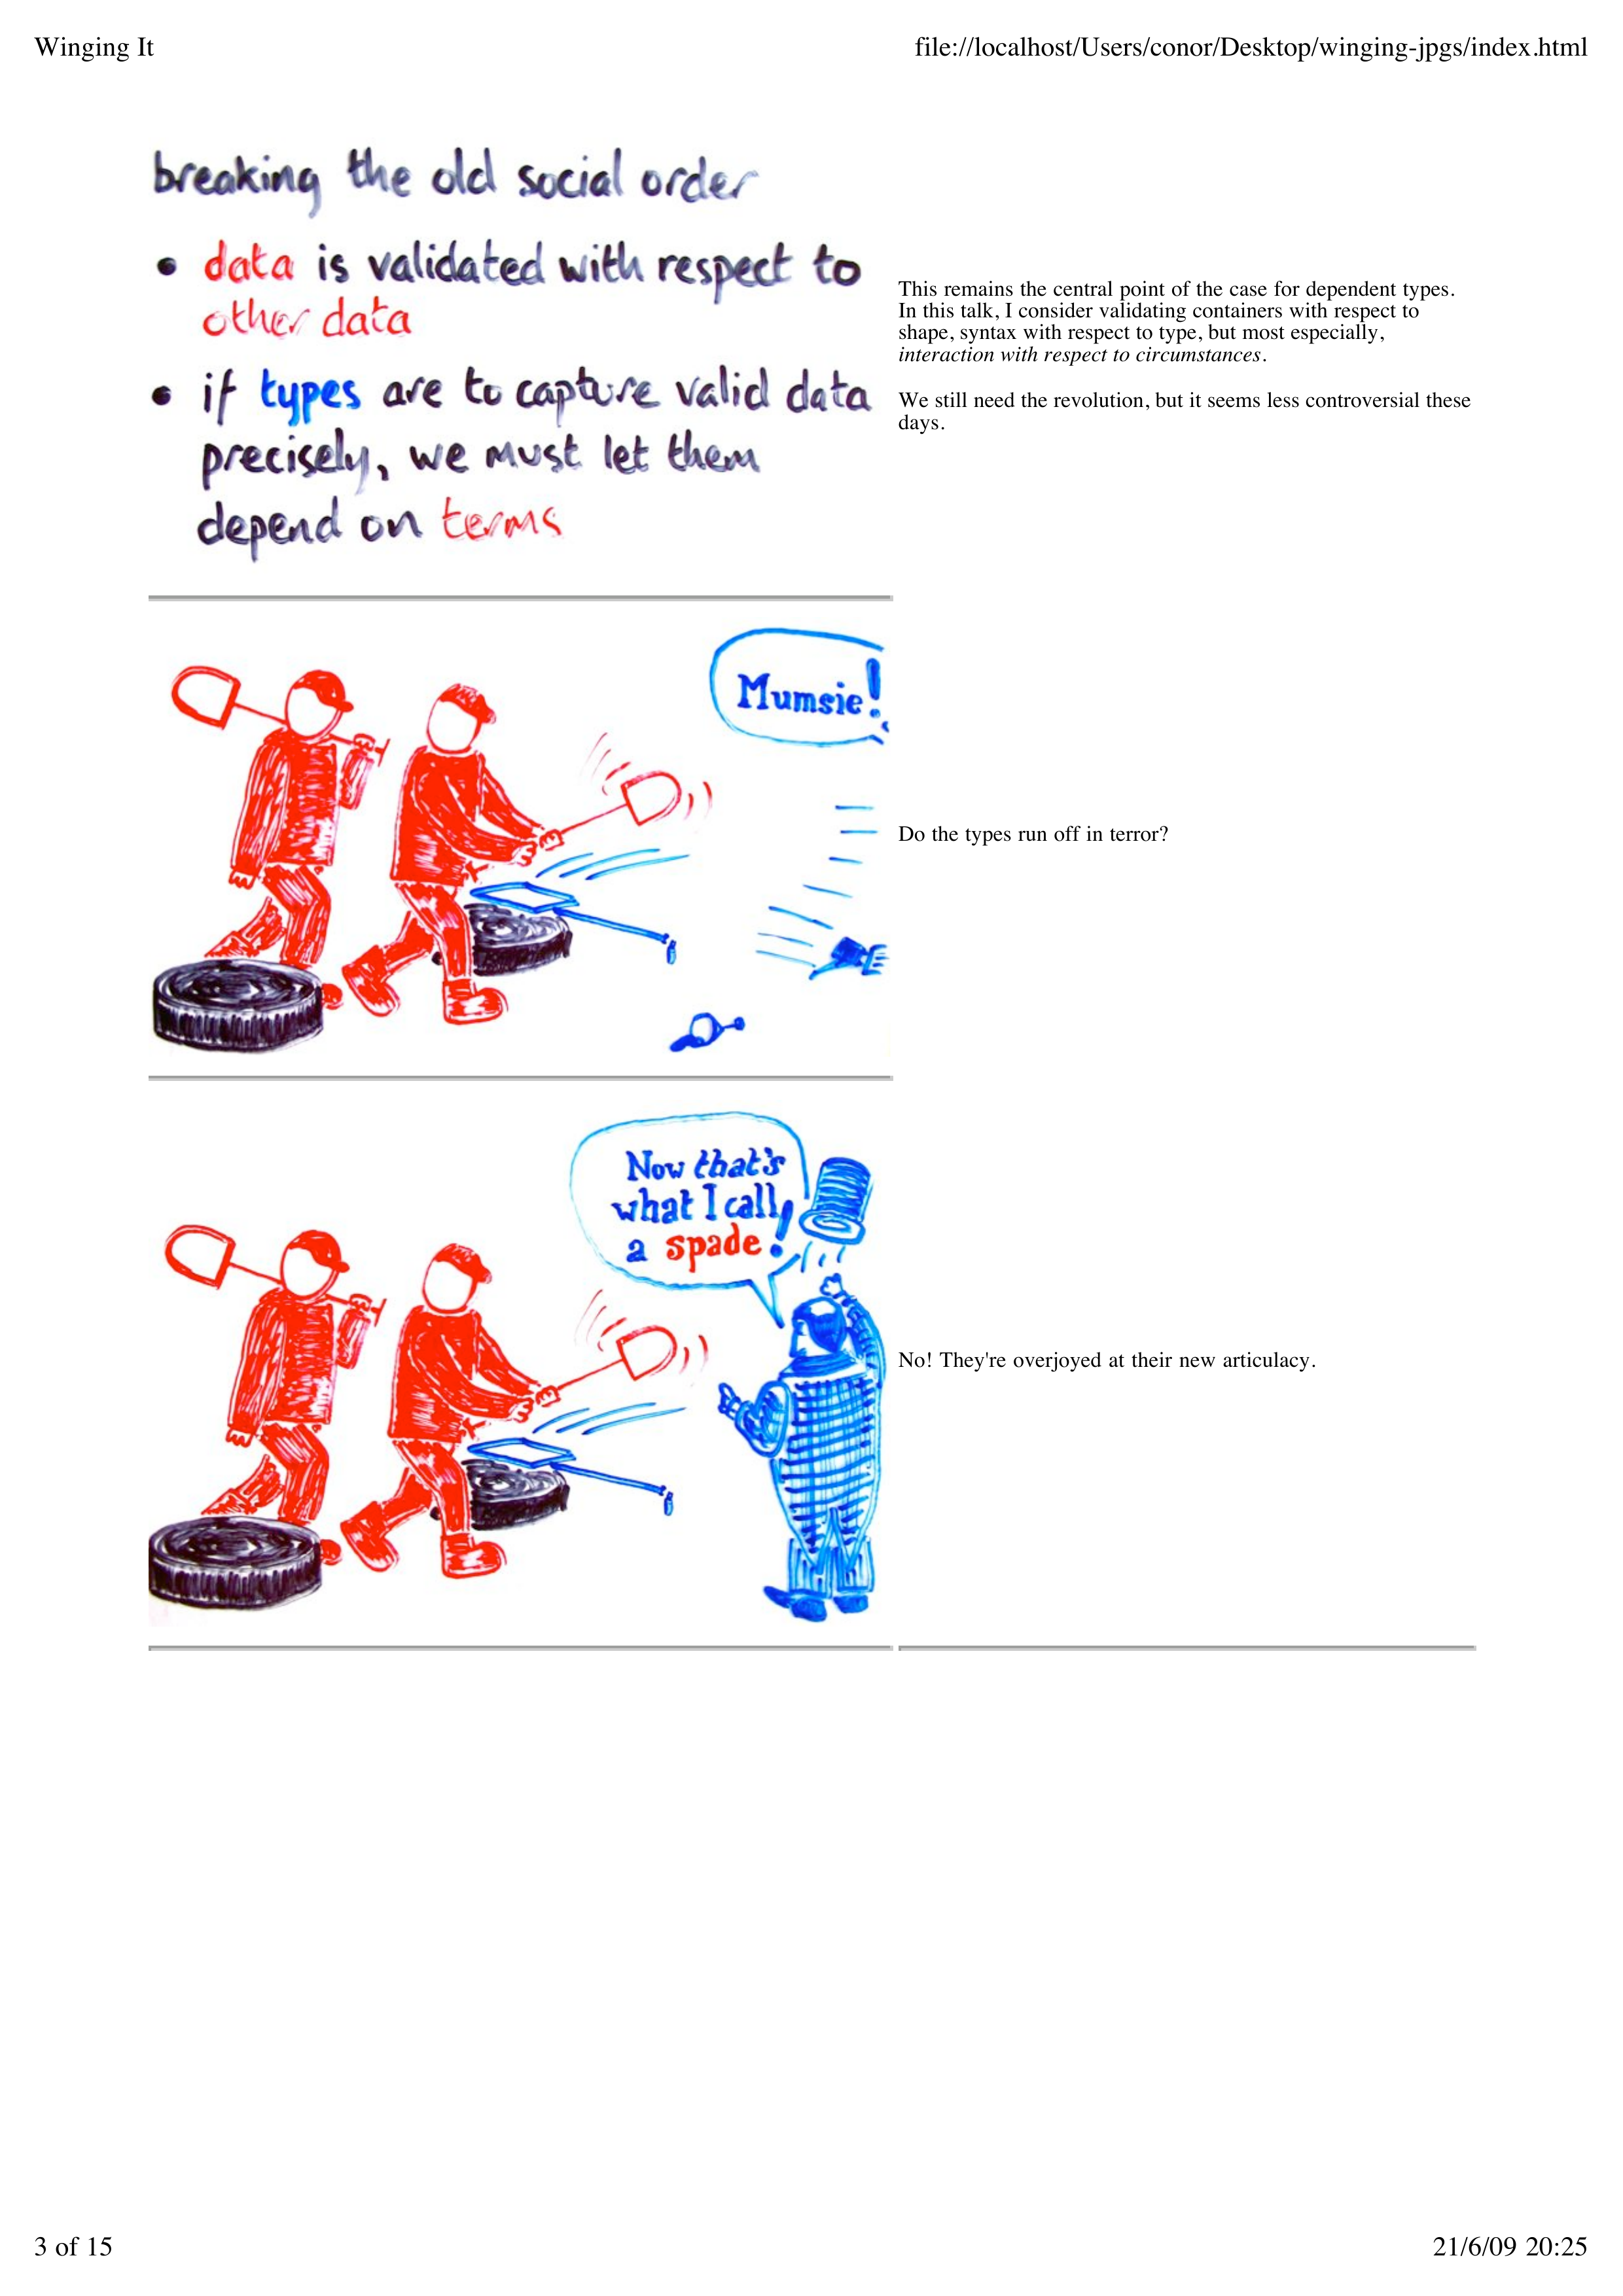 Winging It
file://localhost/Users/conor/Desktop/winging-jpgs/index.html
breaking the old social order
• data is validated with respect to
other data
• if types are to capture valid data
precisely, we must let them
depend on terms
This remains the central point of the case for dependent types.
In this talk, I consider validating containers with respect to
shape, syntax with respect to type, but most especially,
interaction with respect to circumstances.
We still need the revolution, but it seems less controversial these
days.
Mumsie!
Do the types run off in terror?
Now that's
what I call
a spade!
No! They're overjoyed at their new articulacy.
3 of 15
21/6/09 20:25